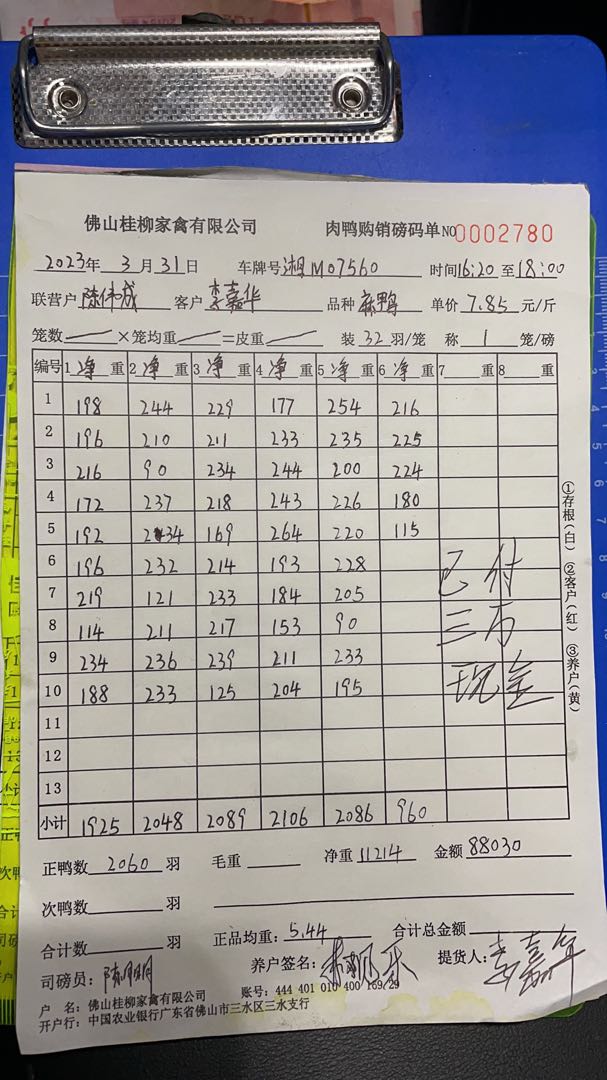 佛山桂柳家禽有限公司 肉鸭购销磅码单 NO 0002780
2023年 3月31日 车牌号 湘M07560 时间16:20至18:00
联营户 陈伟成 客户 李嘉华 品种 麻鸭 单价 7.85 元/斤
笼数 ×笼均重 =皮重 装 32 羽/笼 称 1 笼/磅
编号 1 净 重 2 净 重 3 净 重 4 净 重 5 净 重 6 净 重 7 重 8 重
1 198 244 229 177 254 216
2 196 210 211 233 235 225
3 216 90 234 244 200 224
4 172 237 218 243 226 180
5 192 234 169 264 220 115
6 196 232 214 193 228
7 219 121 233 184 205
8 114 211 217 153 90
9 234 236 239 211 233
10 188 233 125 204 195
11
12
13
小计 1925 2048 2089 2106 2086 960
已付
三万
现金
①存根(白) ②客户(红) ③养户(黄)
正鸭数 2060 羽 毛重 净重 11214 金额 88030
次鸭数 羽
合计数 羽 正品均重: 5.44 合计总金额
司磅员: 养户签名: 提货人: 李嘉华
户 名: 佛山桂柳家禽有限公司 账号: 444 401 010 400 169 29
开户行: 中国农业银行广东省佛山市三水区三水支行